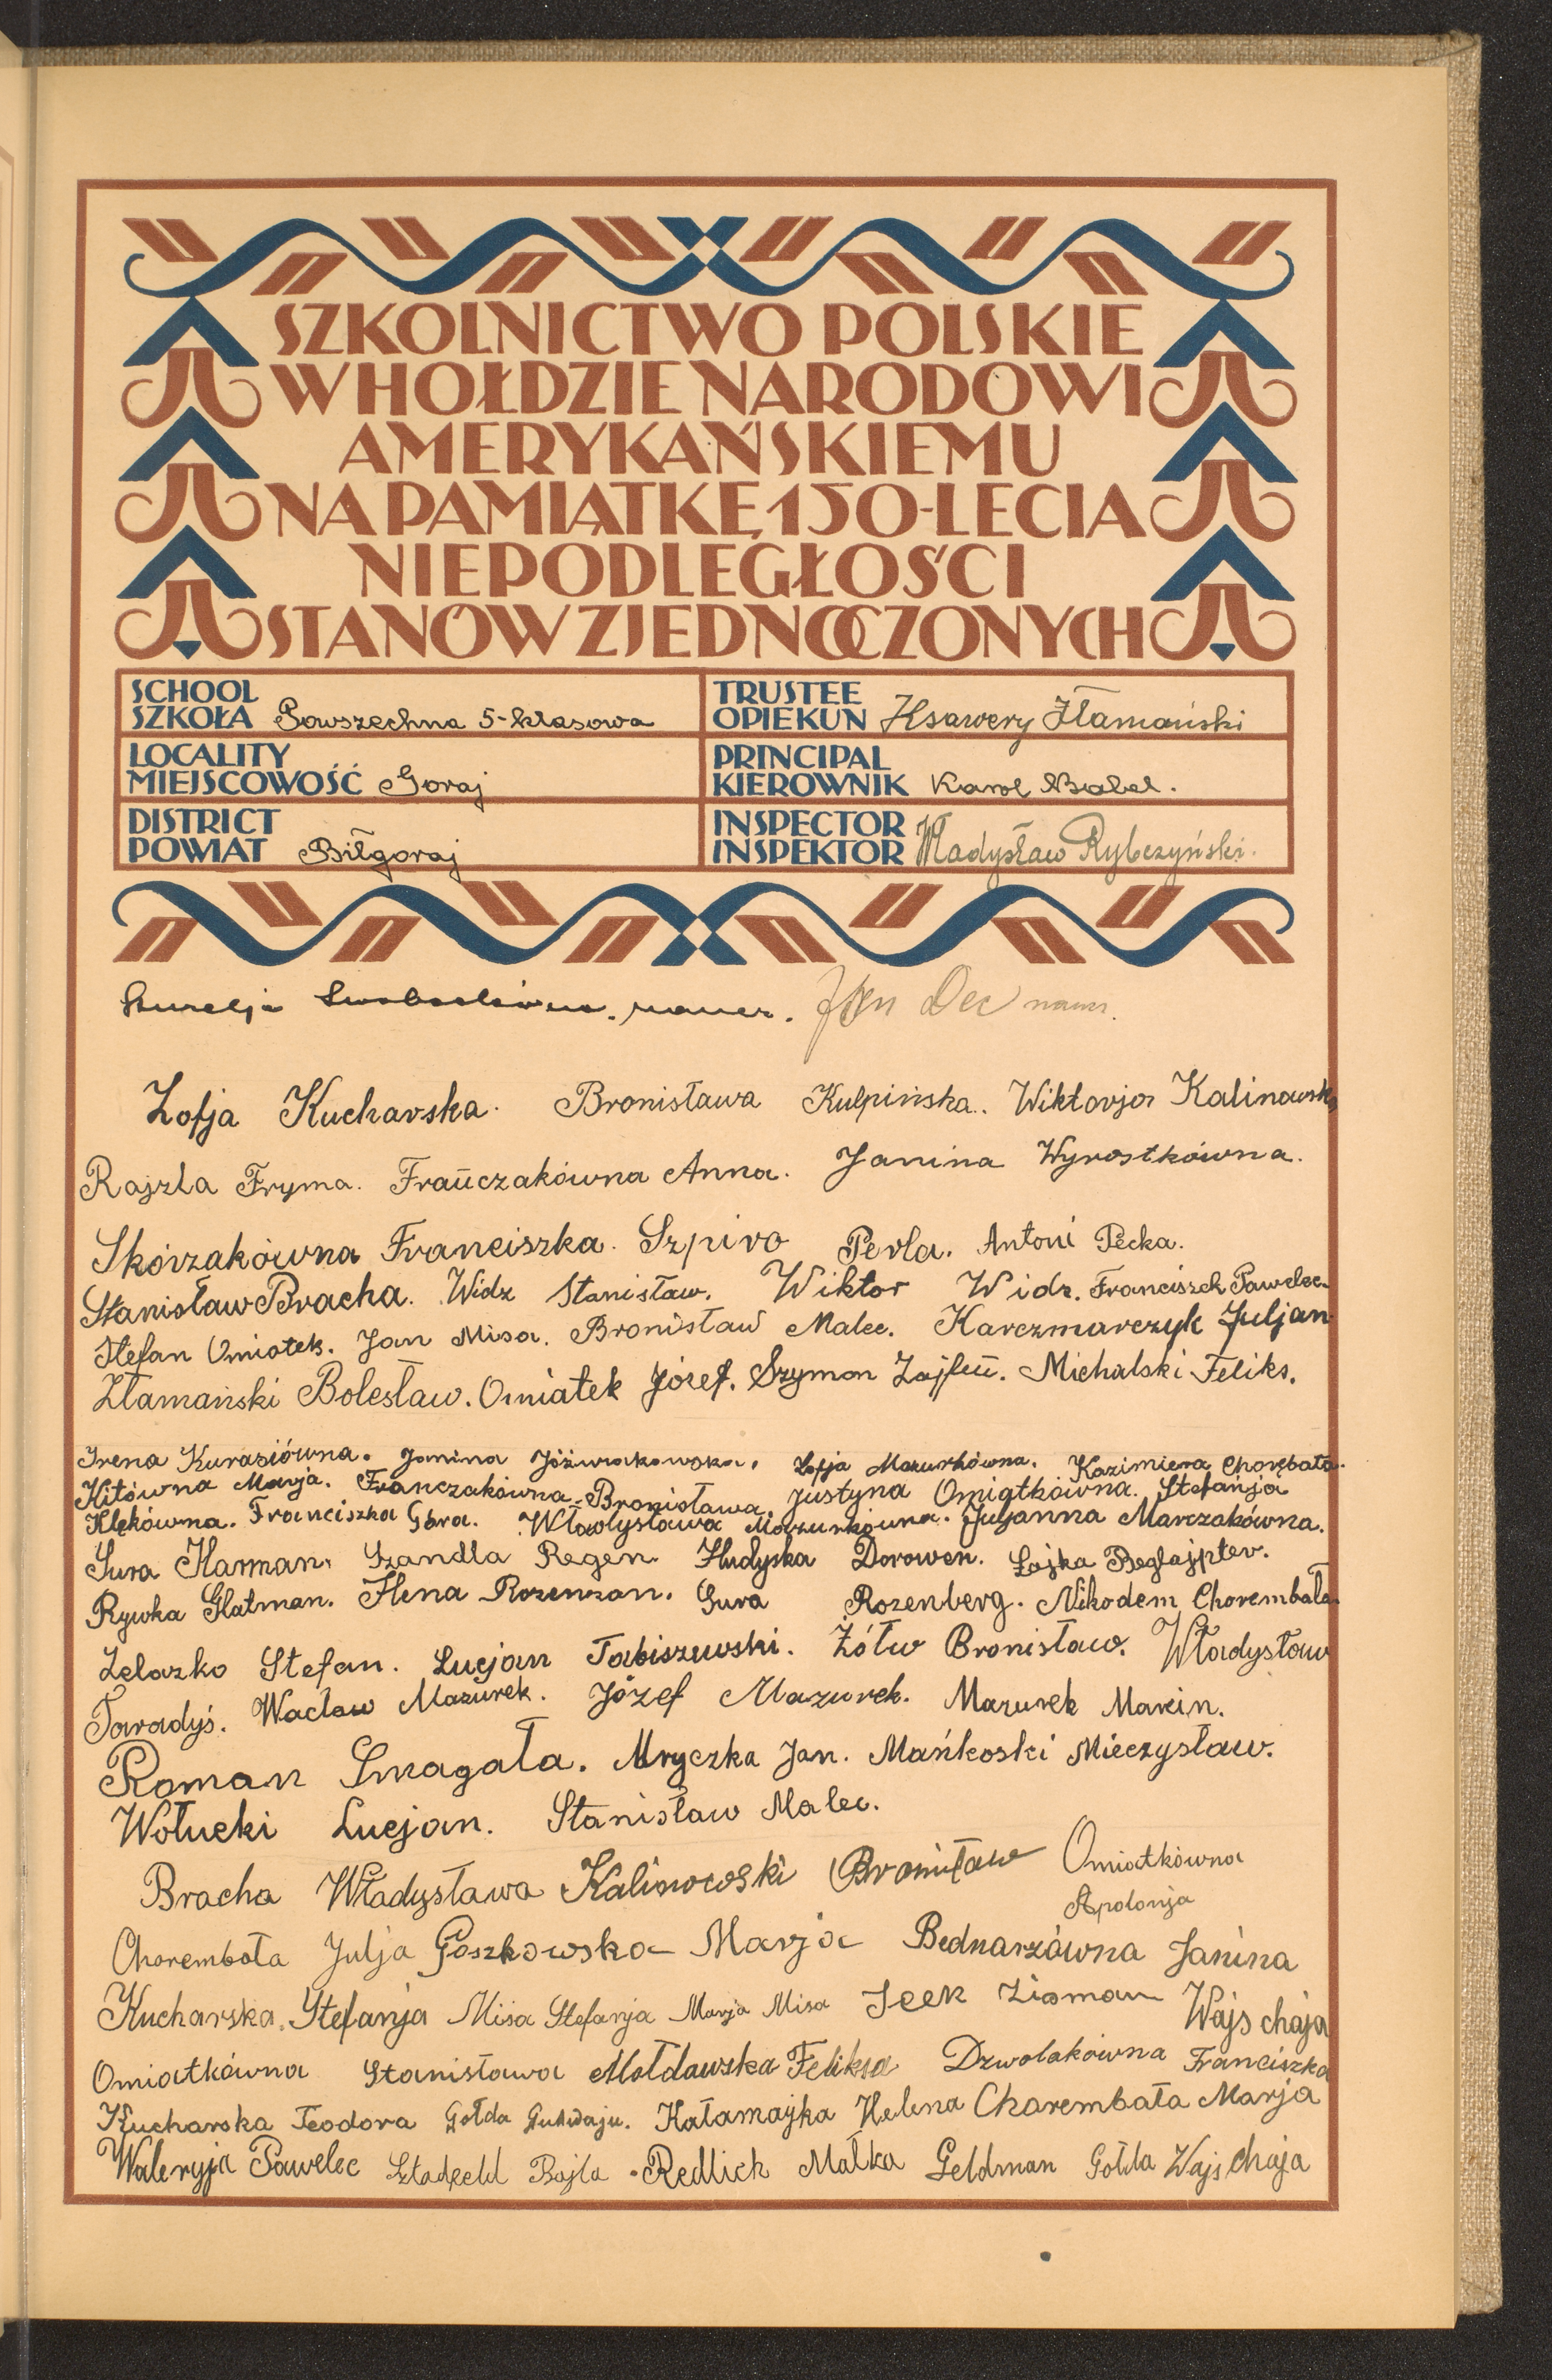 SZKOLNICTWO POLSKIE
W HOŁDZIE NARODOWI
AMERYKAŃSKIEMU
NA PAMIĄTKĘ 150-LECIA
NIEPODLEGŁOŚCI
STANÓW ZJEDNOCZONYCH
SCHOOL
SZKOŁA Powszechna 5-klasowa
TRUSTEE
OPIEKUN Ksawery Złamański
LOCALITY
MIEJSCOWOŚĆ Goraj
PRINCIPAL
KIEROWNIK Karol Babel.
DISTRICT
POWIAT Biłgoraj
INSPECTOR
INSPEKTOR Władysław Rybczyński.
Aurelja naucz. Jan Dec naucz.
Zofja Kucharska. Bronisława Kulpińska. Wiktorja Kalinowska
Rajzla Fryma. Frańczakówna Anna. Janina Wyrostkówna.
Skórzakówna Franciszka. Szpiro Perla. Antoni Pecka.
Stanisław Bracha. Widz Stanisław. Wiktor Widz. Franciszek Pawelec.
Stefan Omiotek. Jan Misa. Bronisław Malec. Karczmarczyk Juljan
Złamański Bolesław. Omiatek Józef. Szymon Michalski Feliks.
Irena Kurasiówna. Janina Jóźwiakowska. Zofja Mazurkówna. Kazimiera Chorębała.
Kitówna Marja. Franczakówna Bronisława Justyna Omiatkówna. Stefanja
Klękówna. Franciszka Góra. Władysława Mazurkówna. Juljanna Marczakówna.
Sura Harman. Szandla Regen. Hudyska Dorowen. Łajka Beglajpter.
Rywka Glatman. Hena Rozenzan. Sura Rozenberg. Nikodem Chorembała
Żelazko Stefan. Lucjan Tabiszewski. Żółw Bronisław. Władysław
Taradyś. Wacław Mazurek. Józef Mazurek. Mazurek Marcin.
Roman Smagała. Mryczka Jan. Mańkoski Mieczysław.
Wołucki Lucjan. Stanisław Malec.
Bracha Władysława Kalinowski Bronisław Omiatkówna
Apolonja
Chorembała Julja Goszkowska Marja Bednarzówna Janina
Kucharska Stefanja Misa Stefanja Marja Misa Icek Zisman Wajs chaja
Omiatkówna Stanisława Mołdawska Feliksa Dzwolakówna Franciszka
Kucharska Teodora Gołda Kałamajka Helena Charembała Marja
Waleryja Pawelec Bajla Redlich Małka Geldman Gołda Wajs chaja